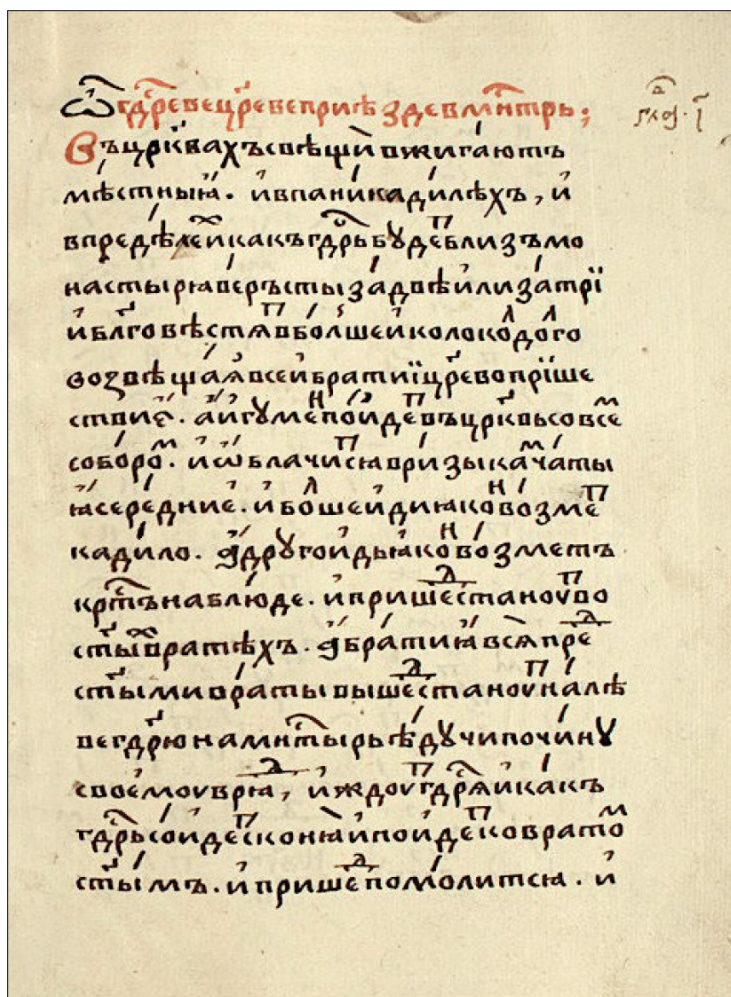 Ѿ гдⷭ҇ревѣ црⷭ҇еве приѣздѣ в мнⷭ҇трь;
Въ црⷦ҇вахъ свѣщи вжигаютъ
мѣстныѧ. и в паникадилѣхъ, и
в предѣлеⷯ и какъ гдⷭ҇рь бꙋдеⷮ близъ мо
настырѧ верьсты за двѣ или за трї
и блг҇овѣстѧⷮ в болшеи колоколⷪ долⷢ҇о
возвѣщаѧ всеи братиї цр҇ево прїше
ствиє. а игꙋмеⷩ поидеⷮ въ црⷦ҇вь со всеⷨ
собороⷨ. и ѡблачиⷮсѧ в ризы камчаты
ѧ середние. и болшеи диѧкоⷩ возмеⷮ
кадило. а дрꙋгои дьѧкоⷩ возметъ
крⷭ҇тъ на блюде. и пришеⷣ станоуⷮ во
ст҃ыⷯ вратѣхъ. а братиѧ всѧ преⷣ
ст҃ыми враты вышеⷣ станоуⷮ на лѣ
ве гдⷭ҇рю на мнⷭ҇тырь ѣдꙋчи по чинꙋ
своемоу врѧⷣ, и ждоуⷮ гдⷭ҇рѧ и какъ
гдⷭ҇рь соидеⷮ с конѧ и поидеⷮ ко вратоⷨ
ст҃ымъ. и пришеⷣ помолитсѧ. и